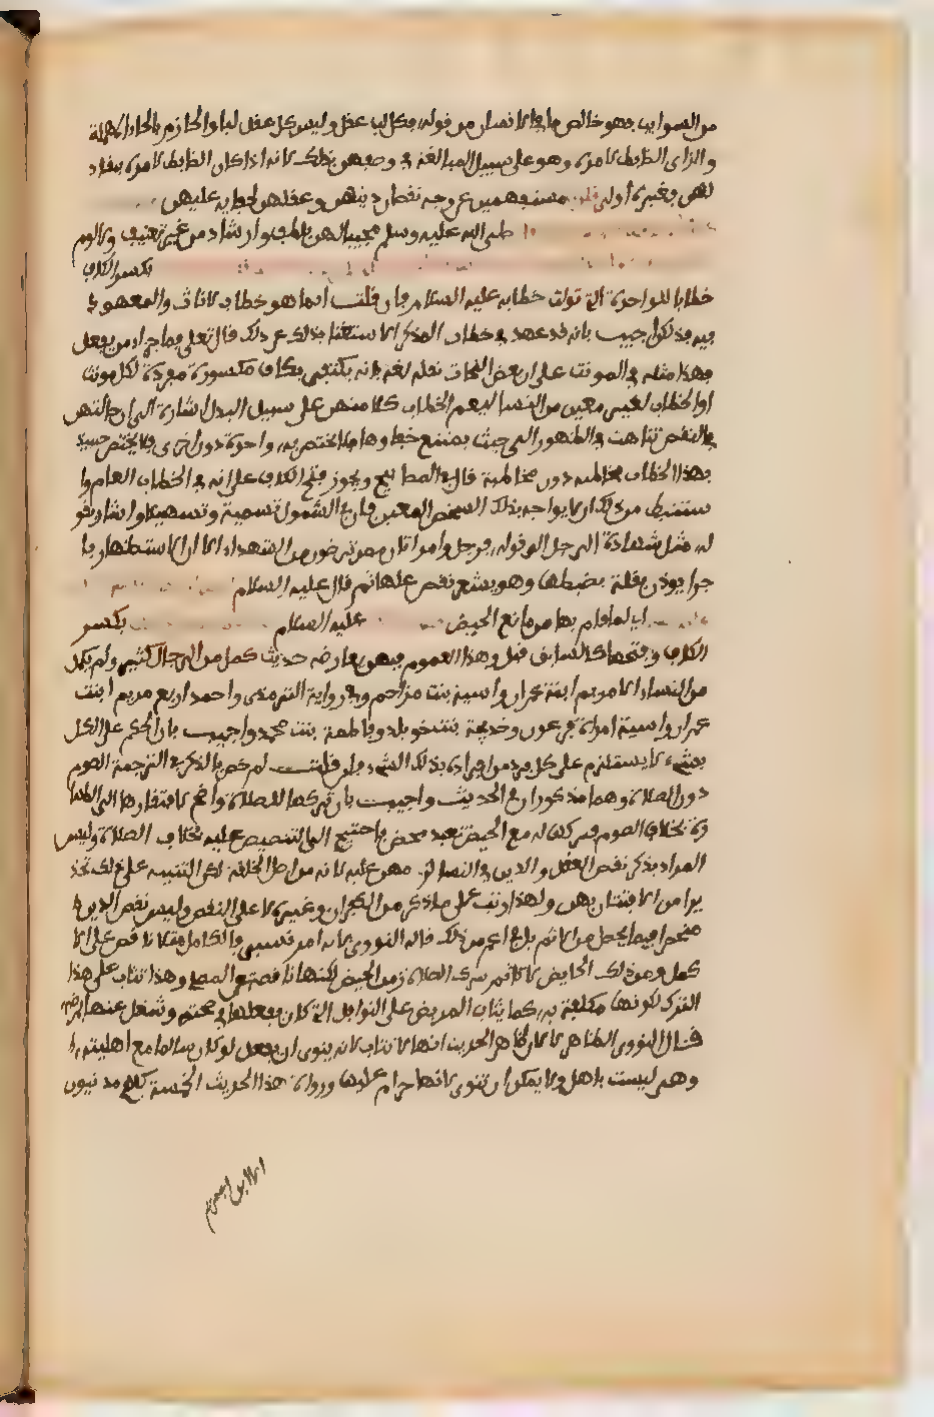 من الشوايب فهو خالص ما في الانسان من قوله فكل لب عقل وليس كل عقل لبا والحازم بالحاء المهملة
والزاي الضابط لامره وهو على سبيل المبالغة في وصفهن بذلك لانه اذا كان الضابط لامره ينقاد
لهن فغيره اولى قلن مستفهمين عن وجه نقصان دينهن وعقلهن لخفايه عليهن
صلى الله عليه وسلم مجيبا لهن بلطف وارشاد من غير تعنيف ولا لوم
بكسر الكاف
خطابا للواحدة التي تولت خطابه عليه السلام فان قلت انما هو خطاب للاناث والمعهود
فيه فذلكن اجيب بانه قد عهد في خطاب المذكر الاستغنا بذلك عن ذلكم قال تعلى فما جزاء من يفعل
فهذا مثله في المونث على ان بعض النحات نقل لغة بانه يكتفى بكاف مكسورة مفردة لكل مونث
او الخطاب لغير معين من النسا ليعم الخطاب كلا منهن على سبيل البدل اشارة الى ان حالتهن
في النقص تناهت في الظهور الى حيث يمتنع خفاوها فلا تختص به واحدة دون اخرى فلا يختص حينيذ
بهذا الخطاب مخاطبة دون مخاطبة قاله في المصابيح ويجوز فتح الكاف على انه في الخطاب العام وا
ستنبط من ذلك ان لا يواجه بذلك الشخص المعين فان في الشمول تسمية وتسهيلا واشار بقو
له مثل شهادة الرجل الى قوله فرجل وامراتان ممن ترضون من الشهداء لان الاستظهار با
خرى يوذن بقلة ضبطها وهو يشعر بنقص عقلها ثم قال عليه السلام
اي لما قام بها من مانع الحيض عليه السلام بكسر
الكاف وفتحها كالسابق قيل وهذا العموم فيهن يعارضه حديث كمل من الرجال كثير ولم يكمل
من النساء الا مريم ابنة عمران واسية بنت مزاحم وفي رواية الترمذي واحمد اربع مريم ابنت
عمران واسية امراة فرعون وخديجة بنت خويلد وفاطمة بنت محمد واجيب بان الحكم على الكل
بشيء لا يستلزم على كل فرد من افراده بذلك الشيء فان قلت لم خص بالذكر في الترجمة الصوم
دون الصلاة وهما مذكوران في الحديث واجيب بان تركها للصلاة واضح لافتقارها الى الطها
رة بخلاف الصوم فتركها له مع الحيض تعبد محض فاحتيج الى التنصيص عليه بخلاف الصلاة وليس
المراد بذكر نقص العقل والدين في النسا لومهن عليه لانه من اصل الخلقة لكن التنبيه على ذلك تحذ
يرا من الافتتان بهن ولهذا رتب على ما ذكر من الكفران وغيره لا على النقص وليس نقص الدين
منحصرا فيما يحصل من الاثم بل في اعم من ذلك قاله النووي لانه امر نسبي فالكامل مثلا ناقص على الا
كمل ومن ذلك الحايض لا تاثم بترك الصلاة زمن الحيض لكنها ناقصة عن المصلي وهل تثاب على هذا
الترك لكونها مكلفة به كما يثاب المريض على النوافل التي كان يفعلها في صحته وشغل عنها بمرضه
قال النووي الظاهر لا لان ظاهر الحديث انها لا تثاب لانه ينوي ان يفعل لو كان سالما مع اهليته
وهي ليست باهل ولا يمكن ان تنوي لانها حرام عليها ورواة هذا الحديث الخمسة كلهم مدنيون
الا ابن ابي مريم